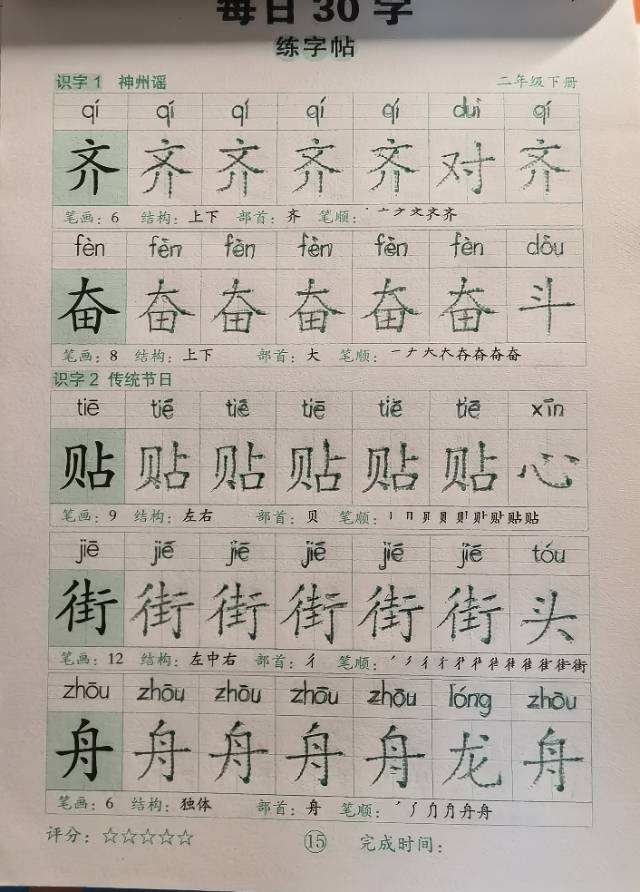 每日30字
练字帖
识字1 神州谣 二年级下册
qí qí qí qí qí duì qí
齐 齐 齐 齐 齐 对 齐
笔画：6 结构：上下 部首：齐 笔顺：
fèn fèn fèn fèn fèn fèn dòu
奋 奋 奋 奋 奋 奋 斗
笔画：8 结构：上下 部首：大 笔顺：
识字2 传统节日
tiē tiē tiē tiē tiē tiē xīn
贴 贴 贴 贴 贴 贴 心
笔画：9 结构：左右 部首：贝 笔顺：
jiē jiē jiē jiē jiē jiē tóu
街 街 街 街 街 街 头
笔画：12 结构：左中右 部首：彳 笔顺：
zhōu zhōu zhōu zhōu zhōu lóng zhōu
舟 舟 舟 舟 舟 龙 舟
笔画：6 结构：独体 部首：舟 笔顺：
评分：☆☆☆☆☆ 15 完成时间：